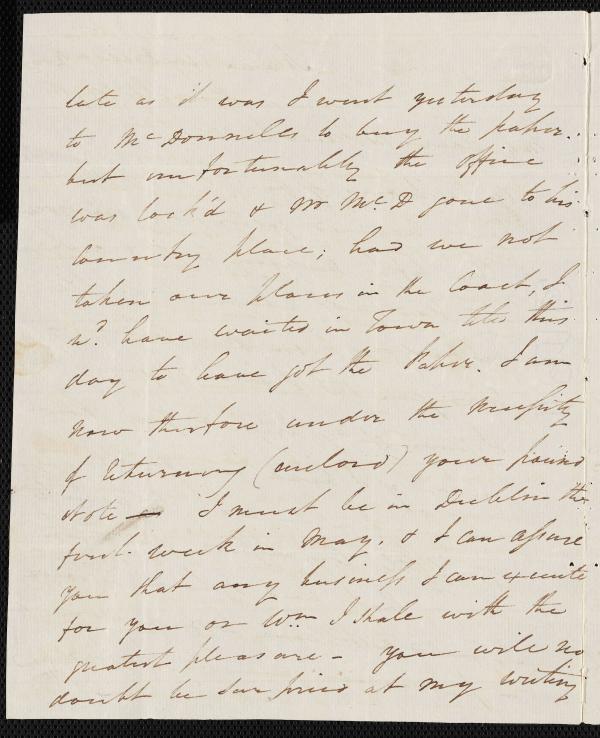 late as it was I went yesterday
to McDonnells to buy the paper.
but unfortunately the office
was lock'd & Mr McD gone to his
country place; had we not
taken our places in the Coach, I
wd have waited in Town till this
day to have got the Paper. I am
now therefore under the necessity
of returning (enclosed) your pound
Note — I must be in Dublin the
first week in May, & I can assure
you that any business I can execute
for you or Wm I shall with the
greatest pleasure – you will no
doubt be surprised at my writing